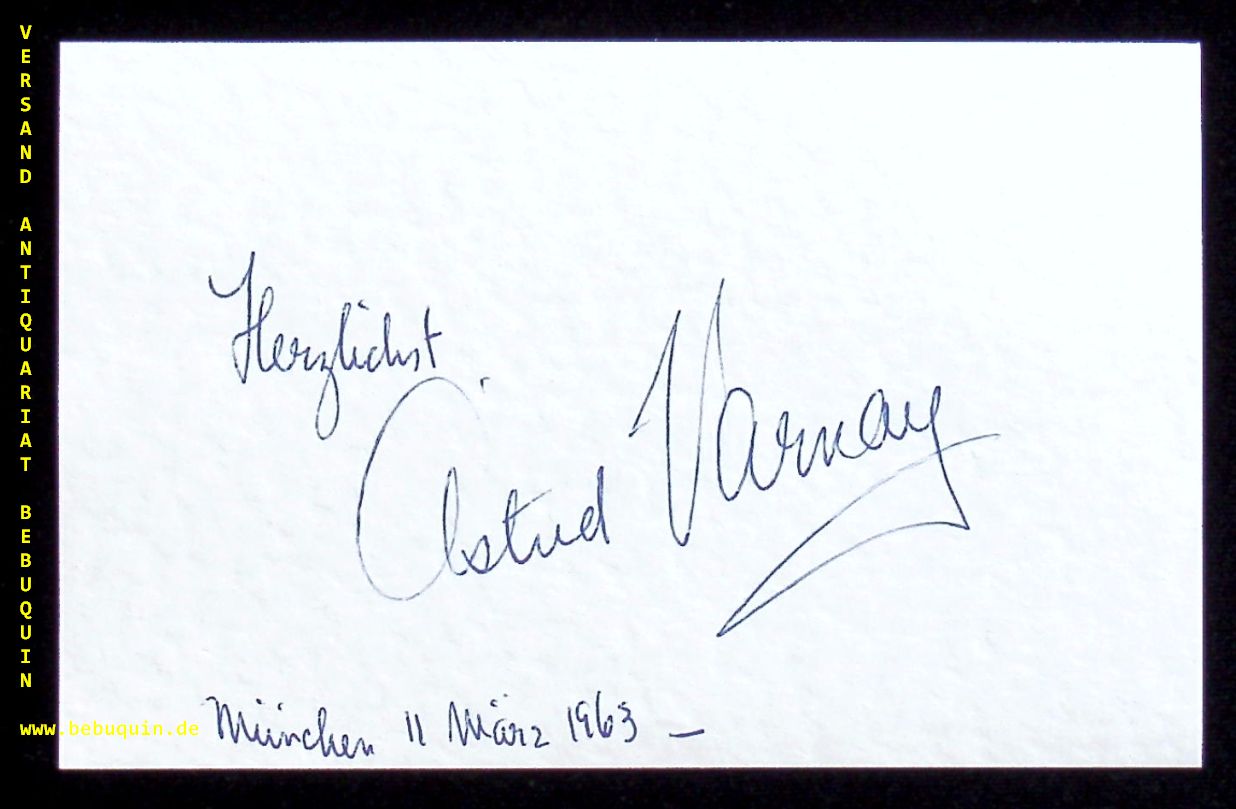 VERSAND ANTIQUARIAT BEBUQUIN
www.bebuquin.de
Herzlichst
Astrid Varnay
München 11 März 1963 —